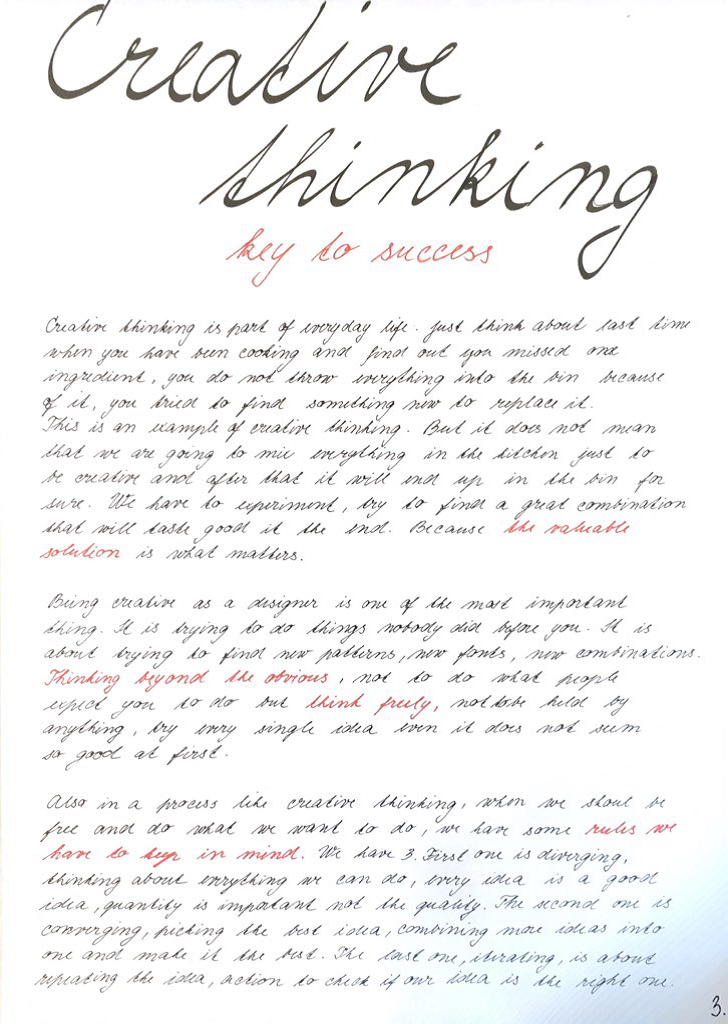 Creative
thinking
key to success
Creative thinking is part of everyday life. Just think about last time
when you have been cooking and find out you missed one
ingredient, you do not throw everything into the bin because
of it, you tried to find something new to replace it.
This is an example of creative thinking. But it does not mean
that we are going to mix everything in the kitchen just to
be creative and after that it will end up in the bin for
sure. We have to experiment, try to find a great combination
that will taste good it the end. Because the valuable
solution is what matters.
Being creative as a designer is one of the most important
thing. It is trying to do things nobody did before you. It is
about trying to find new patterns, new fonts, new combinations.
Thinking beyond the obvious, not to do what people
expect you to do but think freely, not to be held by
anything, try every single idea even it does not seem
so good at first.
Also in a process like creative thinking, when we shoul be
free and do what we want to do, we have some rules we
have to keep in mind. We have 3. First one is diverging,
thinking about everything we can do, every idea is a good
idea, quantity is important not the quality. The second one is
converging, picking the best idea, combining more ideas into
one and make it the best. The last one, iterating, is about
repeating the idea, action to check if our idea is the right one.
3.